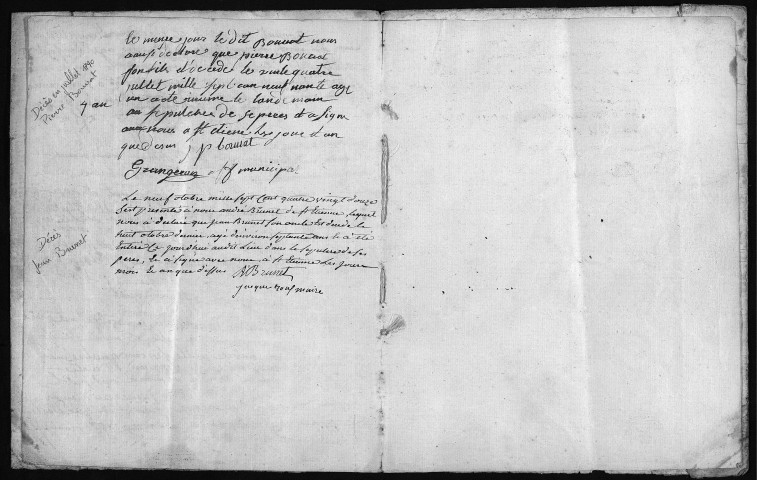 Décès en juillet 1790
Pierre Bonnet
le meme jour ledit Bonnet nous
a declare que pierre Bonnet
son fils decede le vinte quatre
jullet mille sept can neuf nonte age
un acte meme le landemain
au sepulcher de se peres et a signe
avec nous a st etiene les jour et an
que desus p bonnet
4 an
Grangeon of municipa
Décès
Jean Brunet
Le neuf octobre mille sept Cent quatre vingt douze
Sest presenté à nous andré Brunet de St Etienne, lequel
nous à declaré que jean Brunet son oncle Est decedé le
huit octobre dernier, agé denviron septante ans & à eté
Enterré Le jourdhui audit Lieu dans le sepulcre de ses
peres, & à signé avec nous, à St Etienne Les jour
mois & an que dessus ABrunet
jacque maire